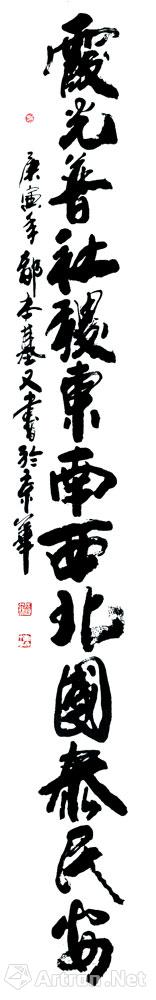 霞光普社稷東南西北國泰民安
庚寅年郭本基又書於京華
Artron.Net